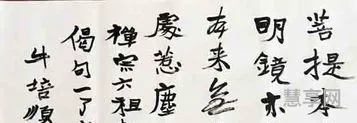 菩提本
明鏡亦
本来無
處惹塵
禪宗六祖
偈句一
牛培順
慧享网